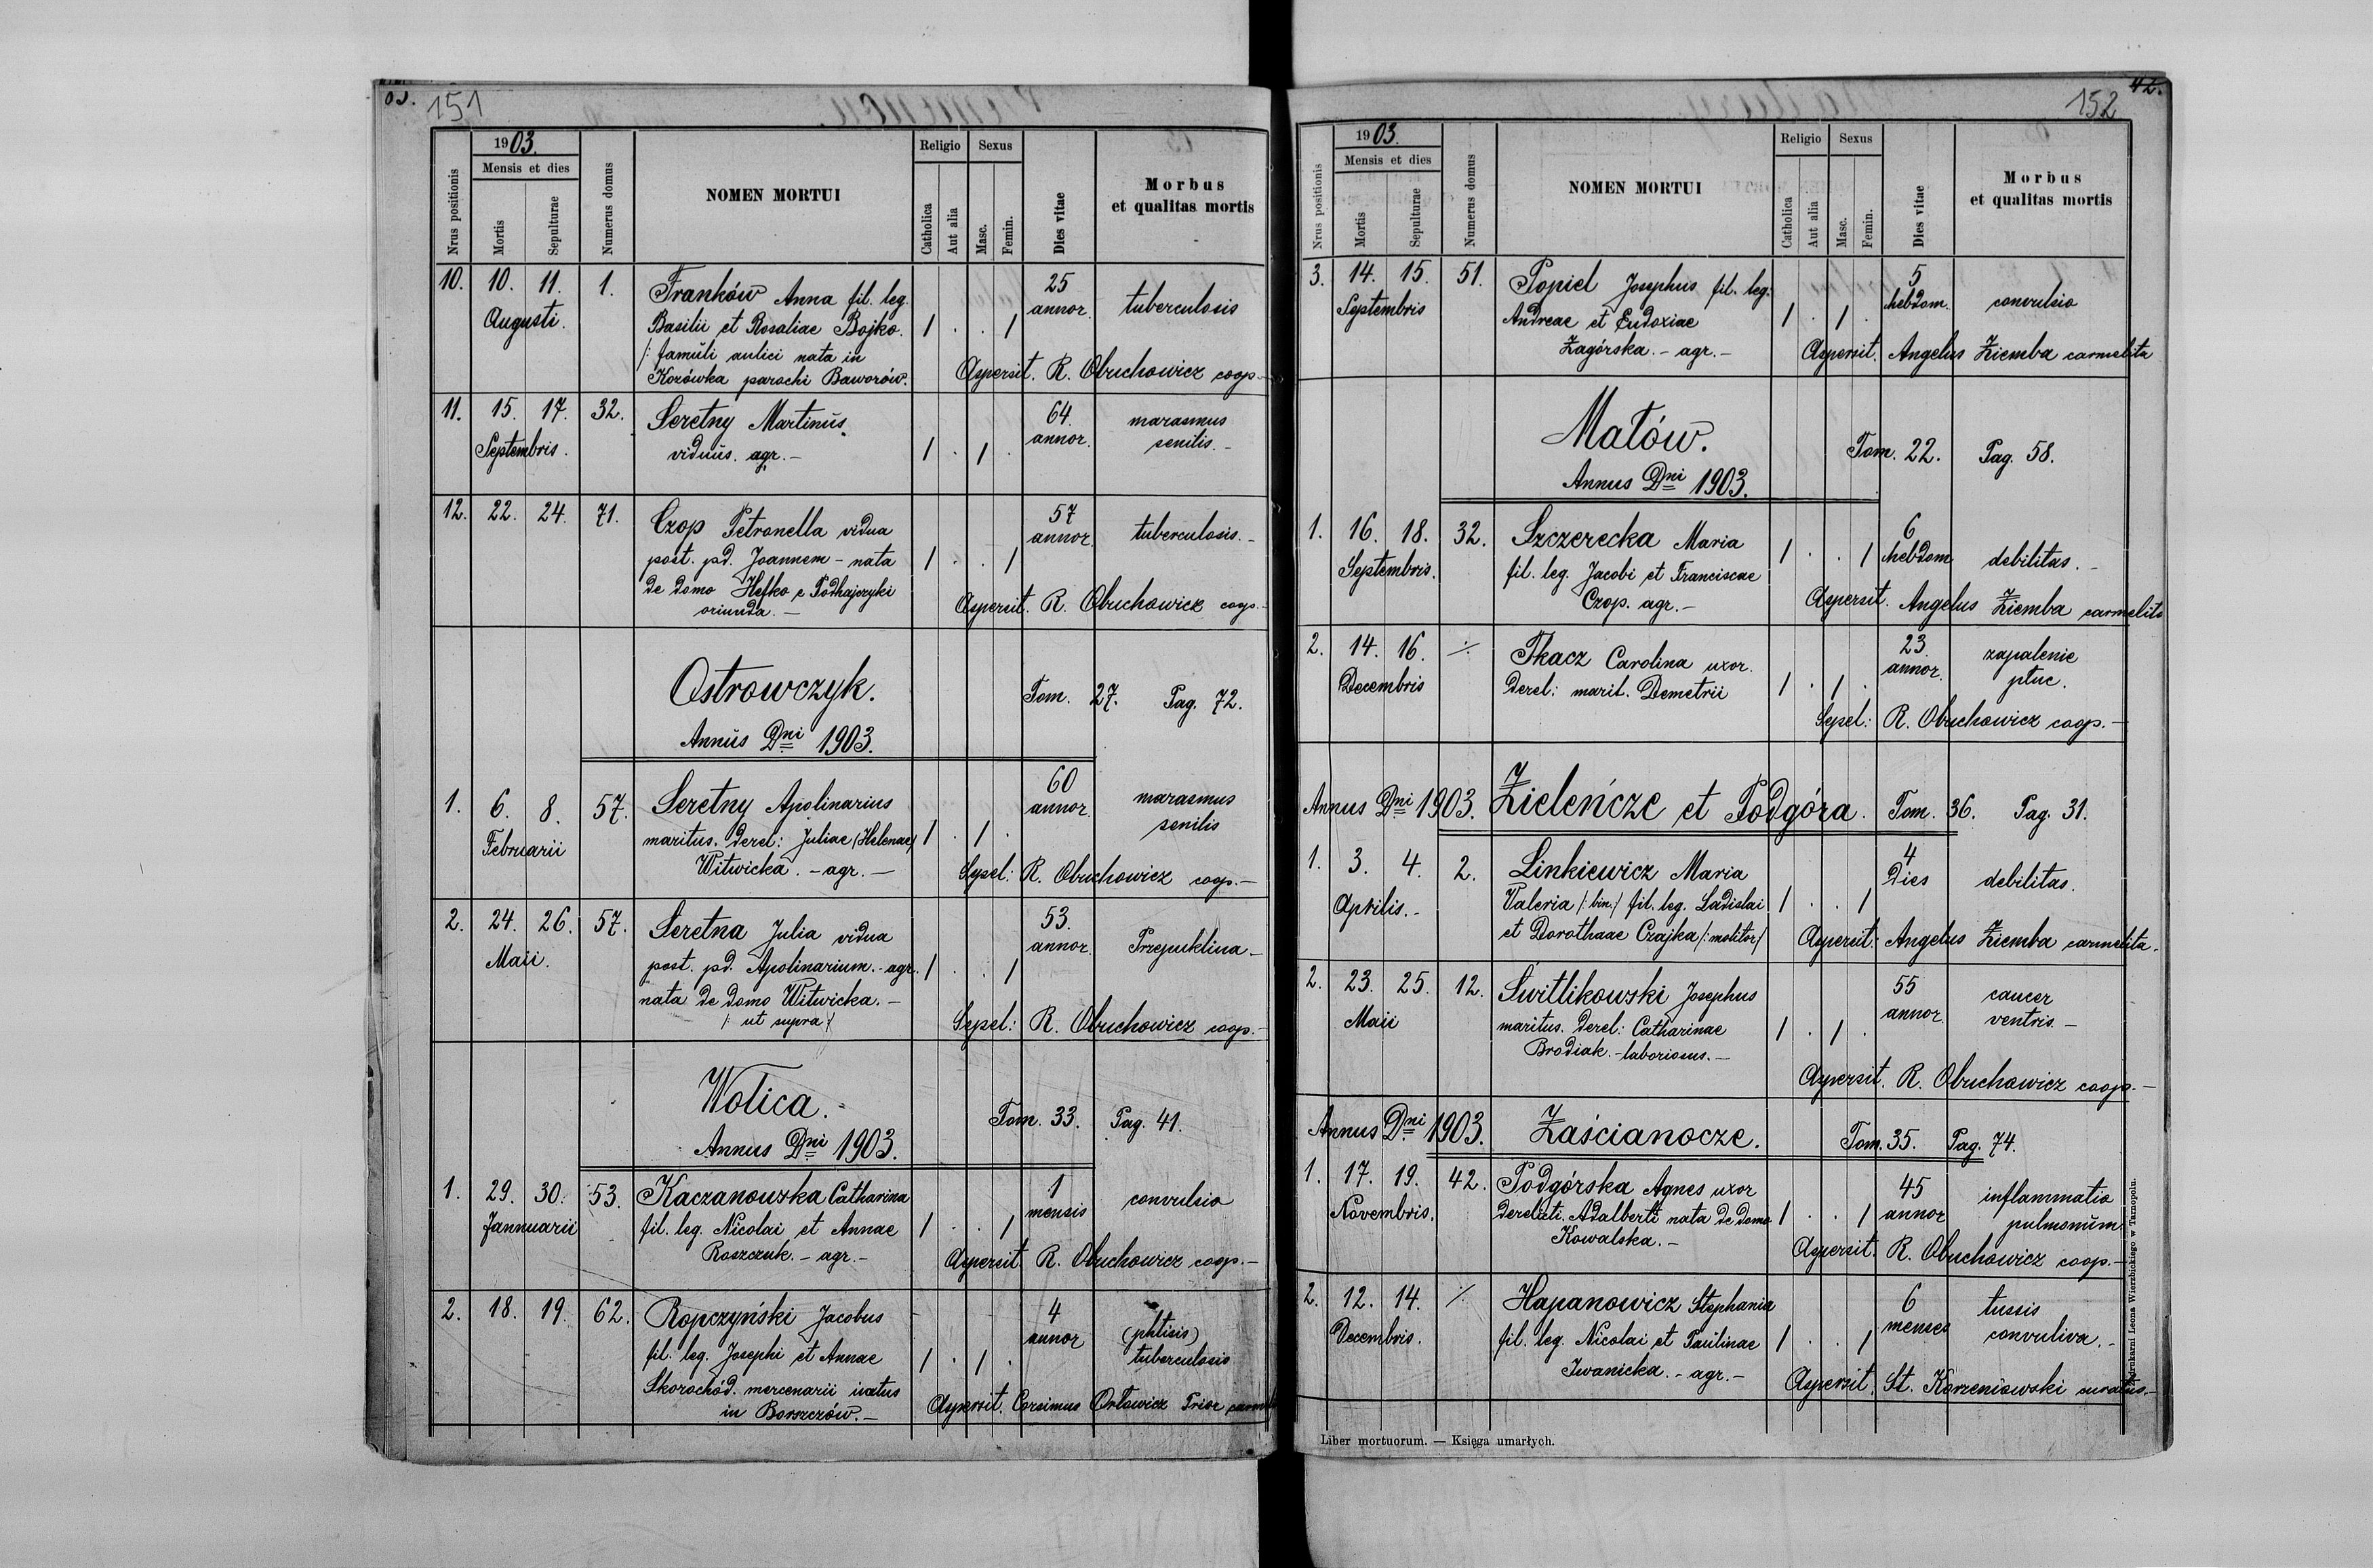 151
1903.
Mensis et dies
Religio
Sexus
Nrus positionis
Mortis
Sepulturae
Numerus domus
NOMEN MORTUI
Catholica
Aut alia
Masc.
Femin.
Dies vitae
Morbus
et qualitas mortis
10. 10. 11. 1. Franków Anna fil. leg. 25 tuberculosis
Augusti. Basilii et Rosaliae Bojko. 1 . . 1 annor.
/: famuli aulici nata in
Kozówka parochi Baworów. Aspersit. R. Obuchowicz coop.
11. 15. 17. 32. Seretny Martinus 64 marasmus
Septembris. viduus. agr. – 1 . 1 . annor. senilis. –
12. 22. 24. 71. Czop Petronella vidua 57 tuberculosis. –
post. pd. Joannem – nata 1 . . 1 annor.
de domo Hefko e Podhajczyki
oriunda. – Aspersit. R. Obuchowicz coop. –
Ostrowczyk. Tom. 27. Pag. 72.
Annus Dni 1903.
1. 6. 8. 57. Seretny Apolinarius 60 marasmus
Februarii maritus. derel: Juliae /Helenae/ 1 . 1 . annor. senilis
Witwicka. – agr. – Sepel: R. Obuchowicz coop. –
2. 24. 26. 57. Seretna Julia vidua 53. Przepuklina –
Maii. post. pd. Apolinarium. – agr. 1 . . 1 annor.
nata de domo Witwicka. –
/: ut supra :/ Sepel: R. Obuchowicz coop. –
Wolica. Tom. 33. Pag. 41.
Annus Dni 1903.
1. 29. 30. 53. Kaczanowzka Catharina 1 convulsio
Jannuarii fil. leg. Nicolai et Annae 1 . . 1 mensis
Roszczuk. – agr. – Aspersit R. Obuchowicz coop. –
2. 18. 19. 62. Ropczyński Jacobus 4 (phtisis)
fil. leg. Josephi et Annae 1 . 1 . annor tuberculosis
Skorochód. mercenarii
in Borszczów. – Aspersit. Orłowicz Prior
152
42.
1903.
Mensis et dies
Religio
Sexus
Nrus positionis
Mortis
Sepulturae
Numerus domus
NOMEN MORTUI
Catholica
Aut alia
Masc.
Femin.
Dies vitae
Morbus
et qualitas mortis
3. 14. 15. 51. Popiel Josephus fil. leg. 5 convulsio
Septembris Andreae et Eudoxiae 1 . 1 . hebdom.
Zagórska. – agr. – Aspersit. Angelus Ziemba carmelita
Małów. Tom. 22. Pag. 58.
Annus Dni 1903.
1. 16. 18. 32. Szczerecka Maria 6 debilitas. –
Septembris. fil. leg. Jacobi et Franciscae 1 . . 1 hebdom
Czop. agr. – Aspersit. Angelus Ziemba carmelita
2. 14. 16. ·/. Tkacz Carolina uxor. 23 zapalenie
Decembris derel: marit. Demetrii 1 . 1 . annor. płuc.
Sepel: R. Obuchowicz coop. –
Annus Dni 1903. Zieleńcze et Podgóra. Tom. 36. Pag. 31.
1. 3. 4. 2. Linkiewicz Maria 4 debilitas.
Aprilis. – Valeria /: bin./ fil. leg. Ladislai 1 . . 1 Dies
et Dorotheae Czajka /: molitor/ Aspersit: Angelus Ziemba carmelita.
2. 23. 25. 12. Świtlikowski Josephus 55 cancer
Maii maritus. derel: Catharinae 1 . 1 . annor. ventris. –
Brodiak. – laboriosus. – Aspersit. R. Obuchowicz coop. –
Annus Dni 1903. Zaścianocze. Tom. 35. Pag. 74.
1. 17. 19. 42. Podgórska Agnes uxor 45 inflammatio
Novembris. derelicti. Adalberti nata de domo 1 . . 1 annor pulmonum
Kowalska. – Aspersit. R. Obuchowicz coop. –
2. 12. 14. ·/. Hapanowicz Stephania 6 tussis
Decembris. fil. leg. Nicolai et Paulinae 1 . . 1 menses convuliva. –
Iwanicka. – agr. – Aspersit. St. Korzeniowski curatus. –
Liber mortuorum. — Księga umarłych.
Drukarni Leona Wierzbickiego w Tarnopolu.